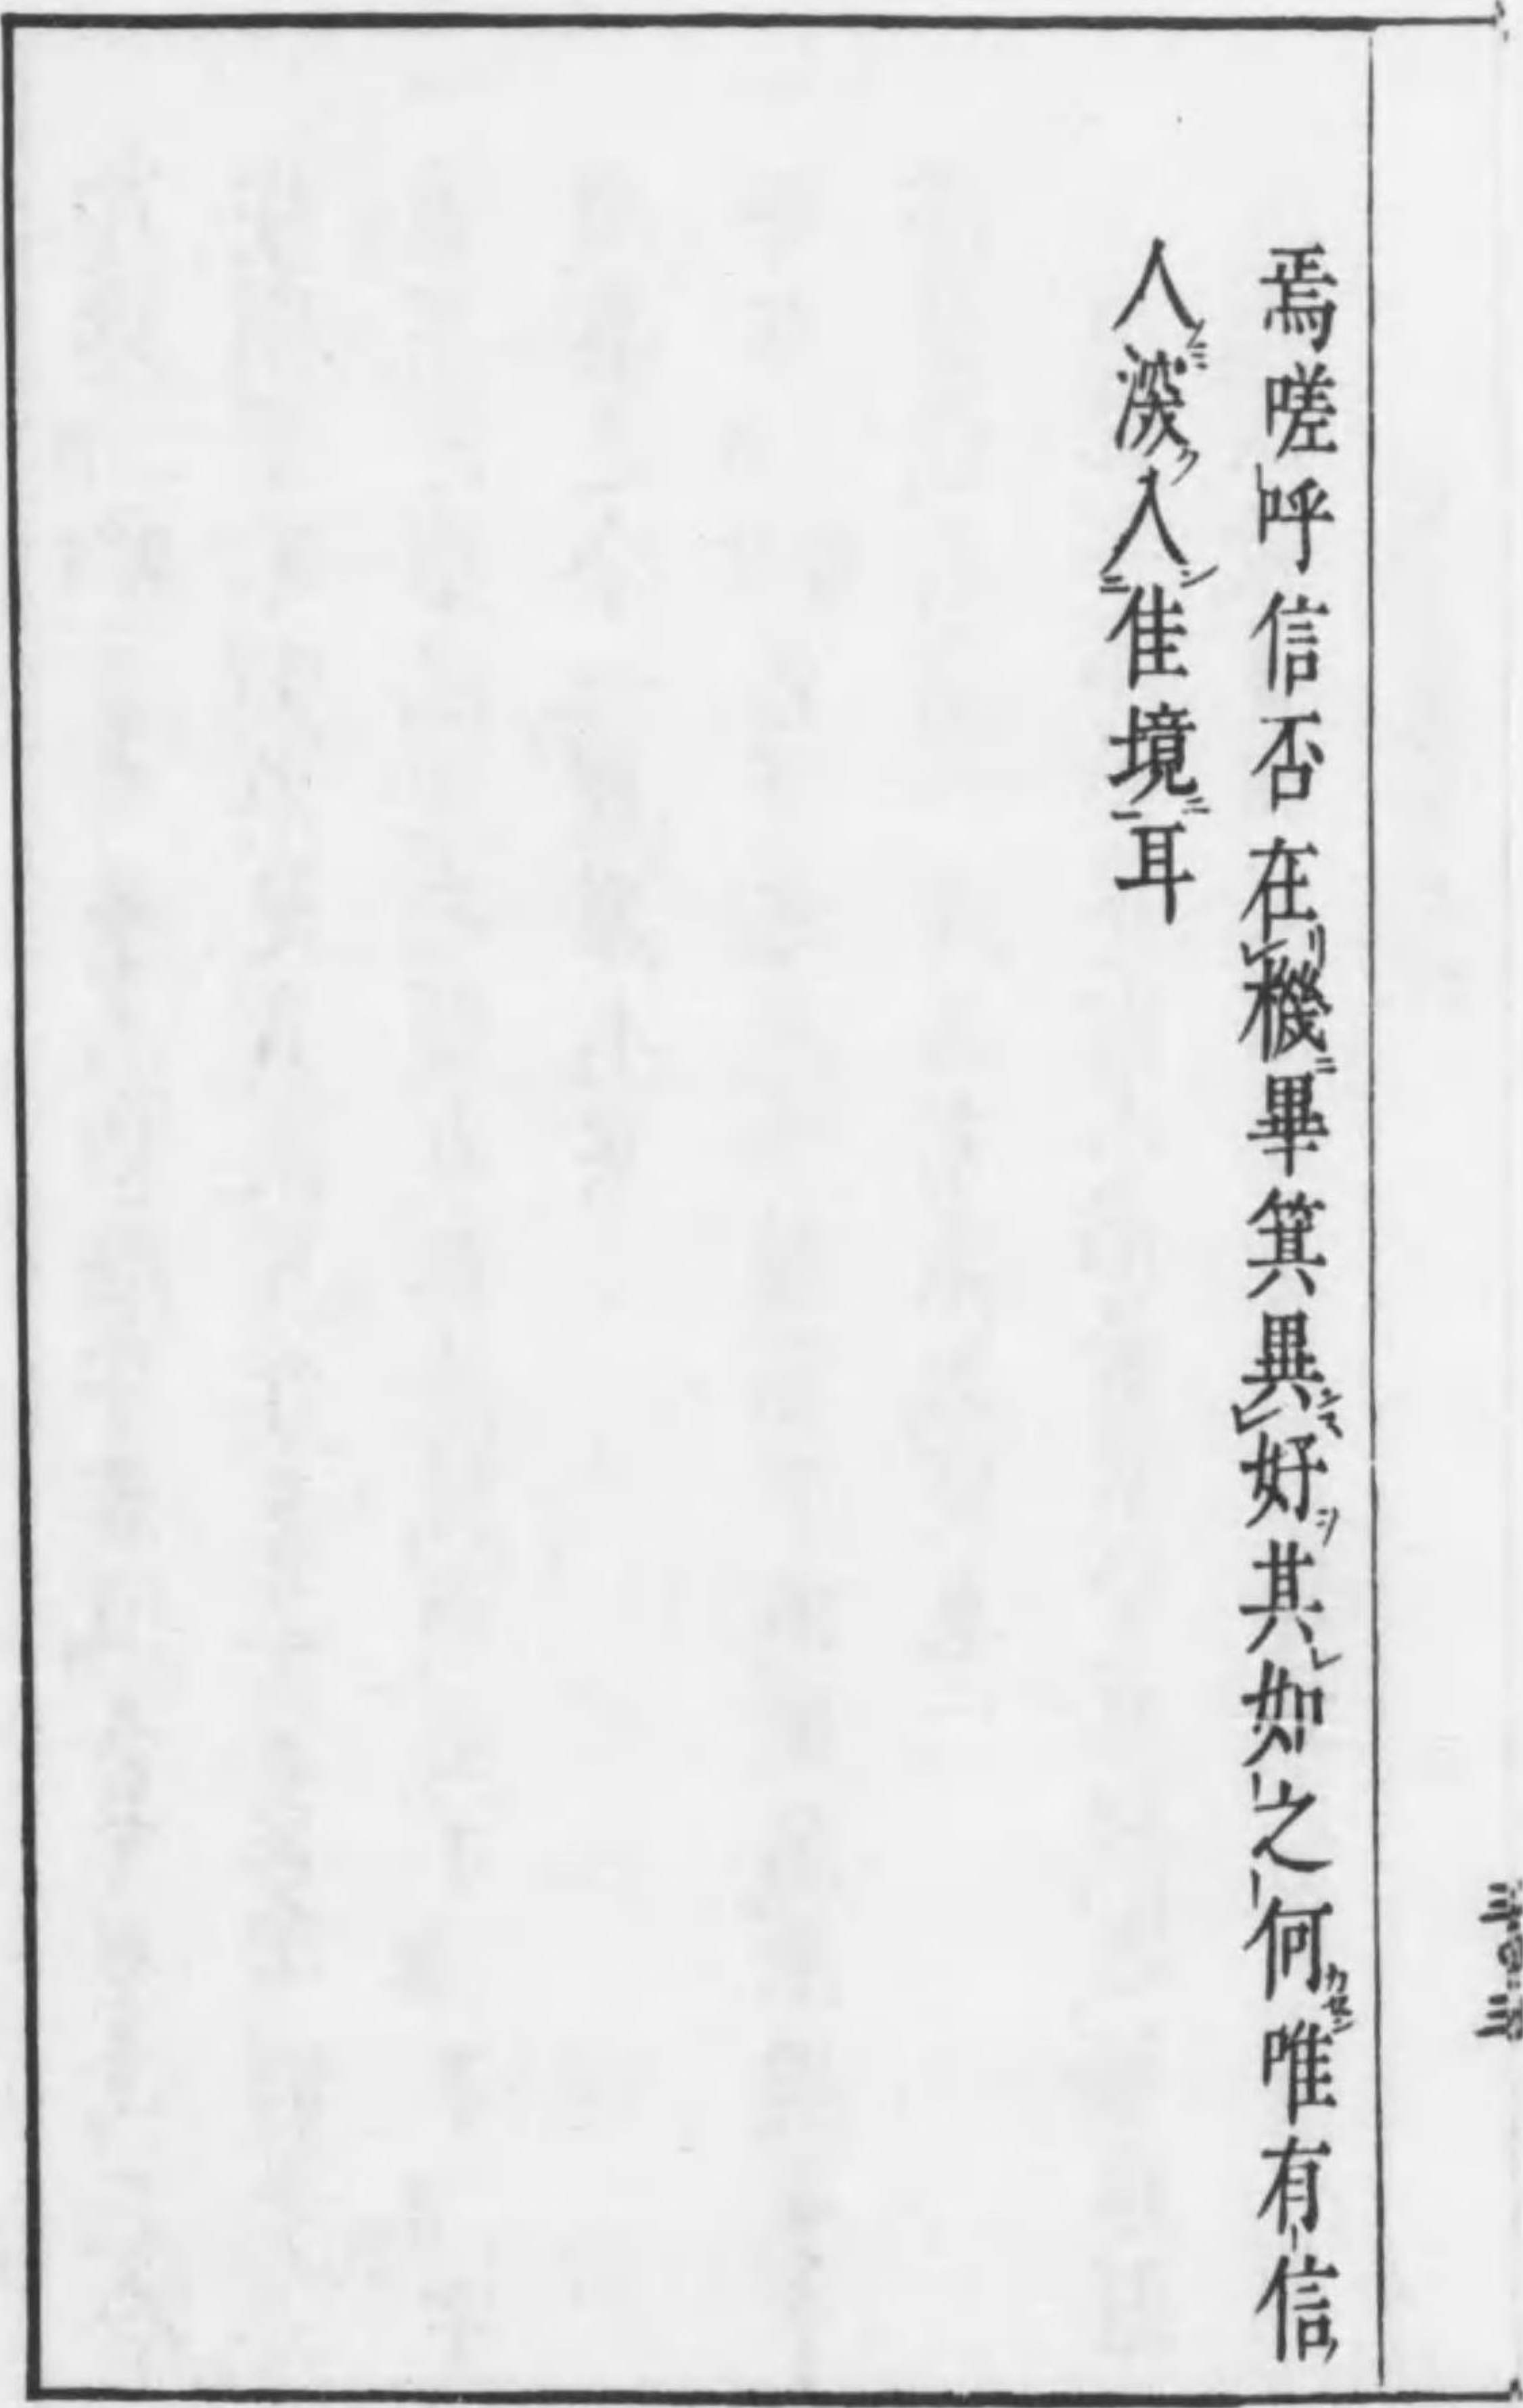 焉嗟呼信否在機畢箕異好其如之何唯有信
人深入佳境耳